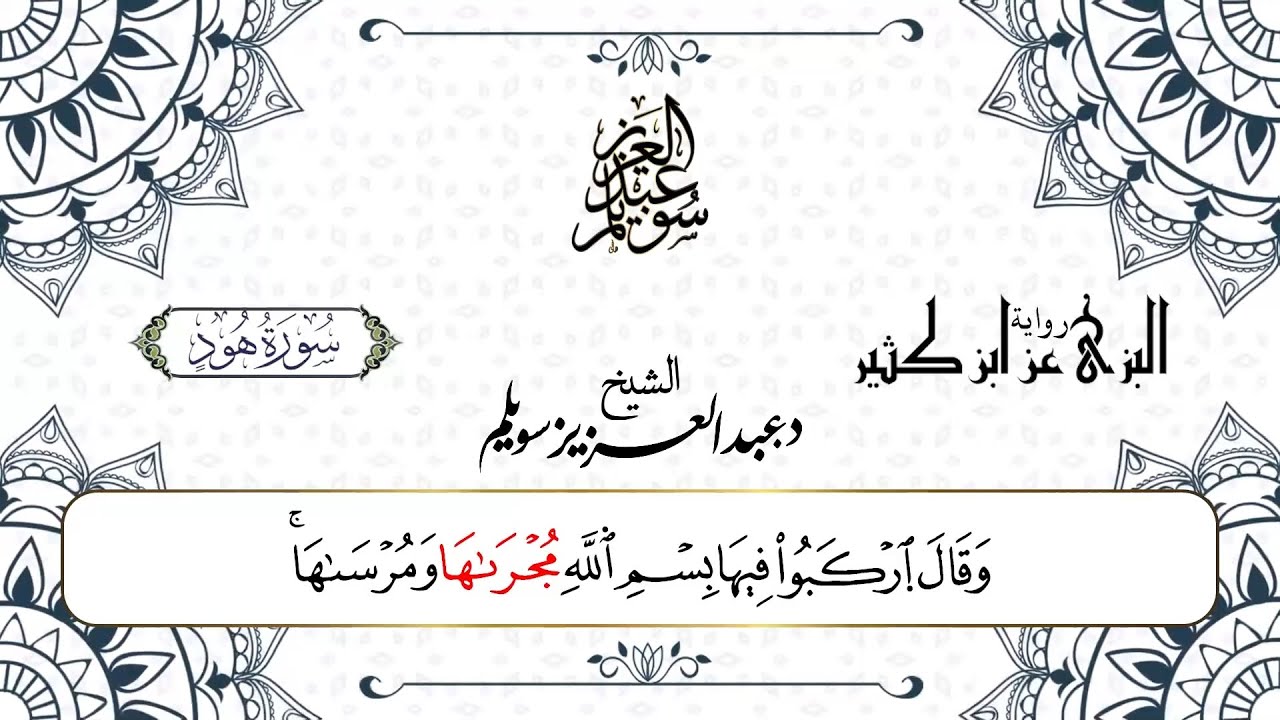 عبد العزيز سويلم
رواية
البزي عن ابن كثير
سُورَةُ هُودٍ
الشيخ
د عبد العزيز سويلم
وَقَالَ ٱرۡكَبُواْ فِيهَا بِسۡمِ ٱللَّهِ مُجۡرَىٰهَا وَمُرۡسَىٰهَاۚ